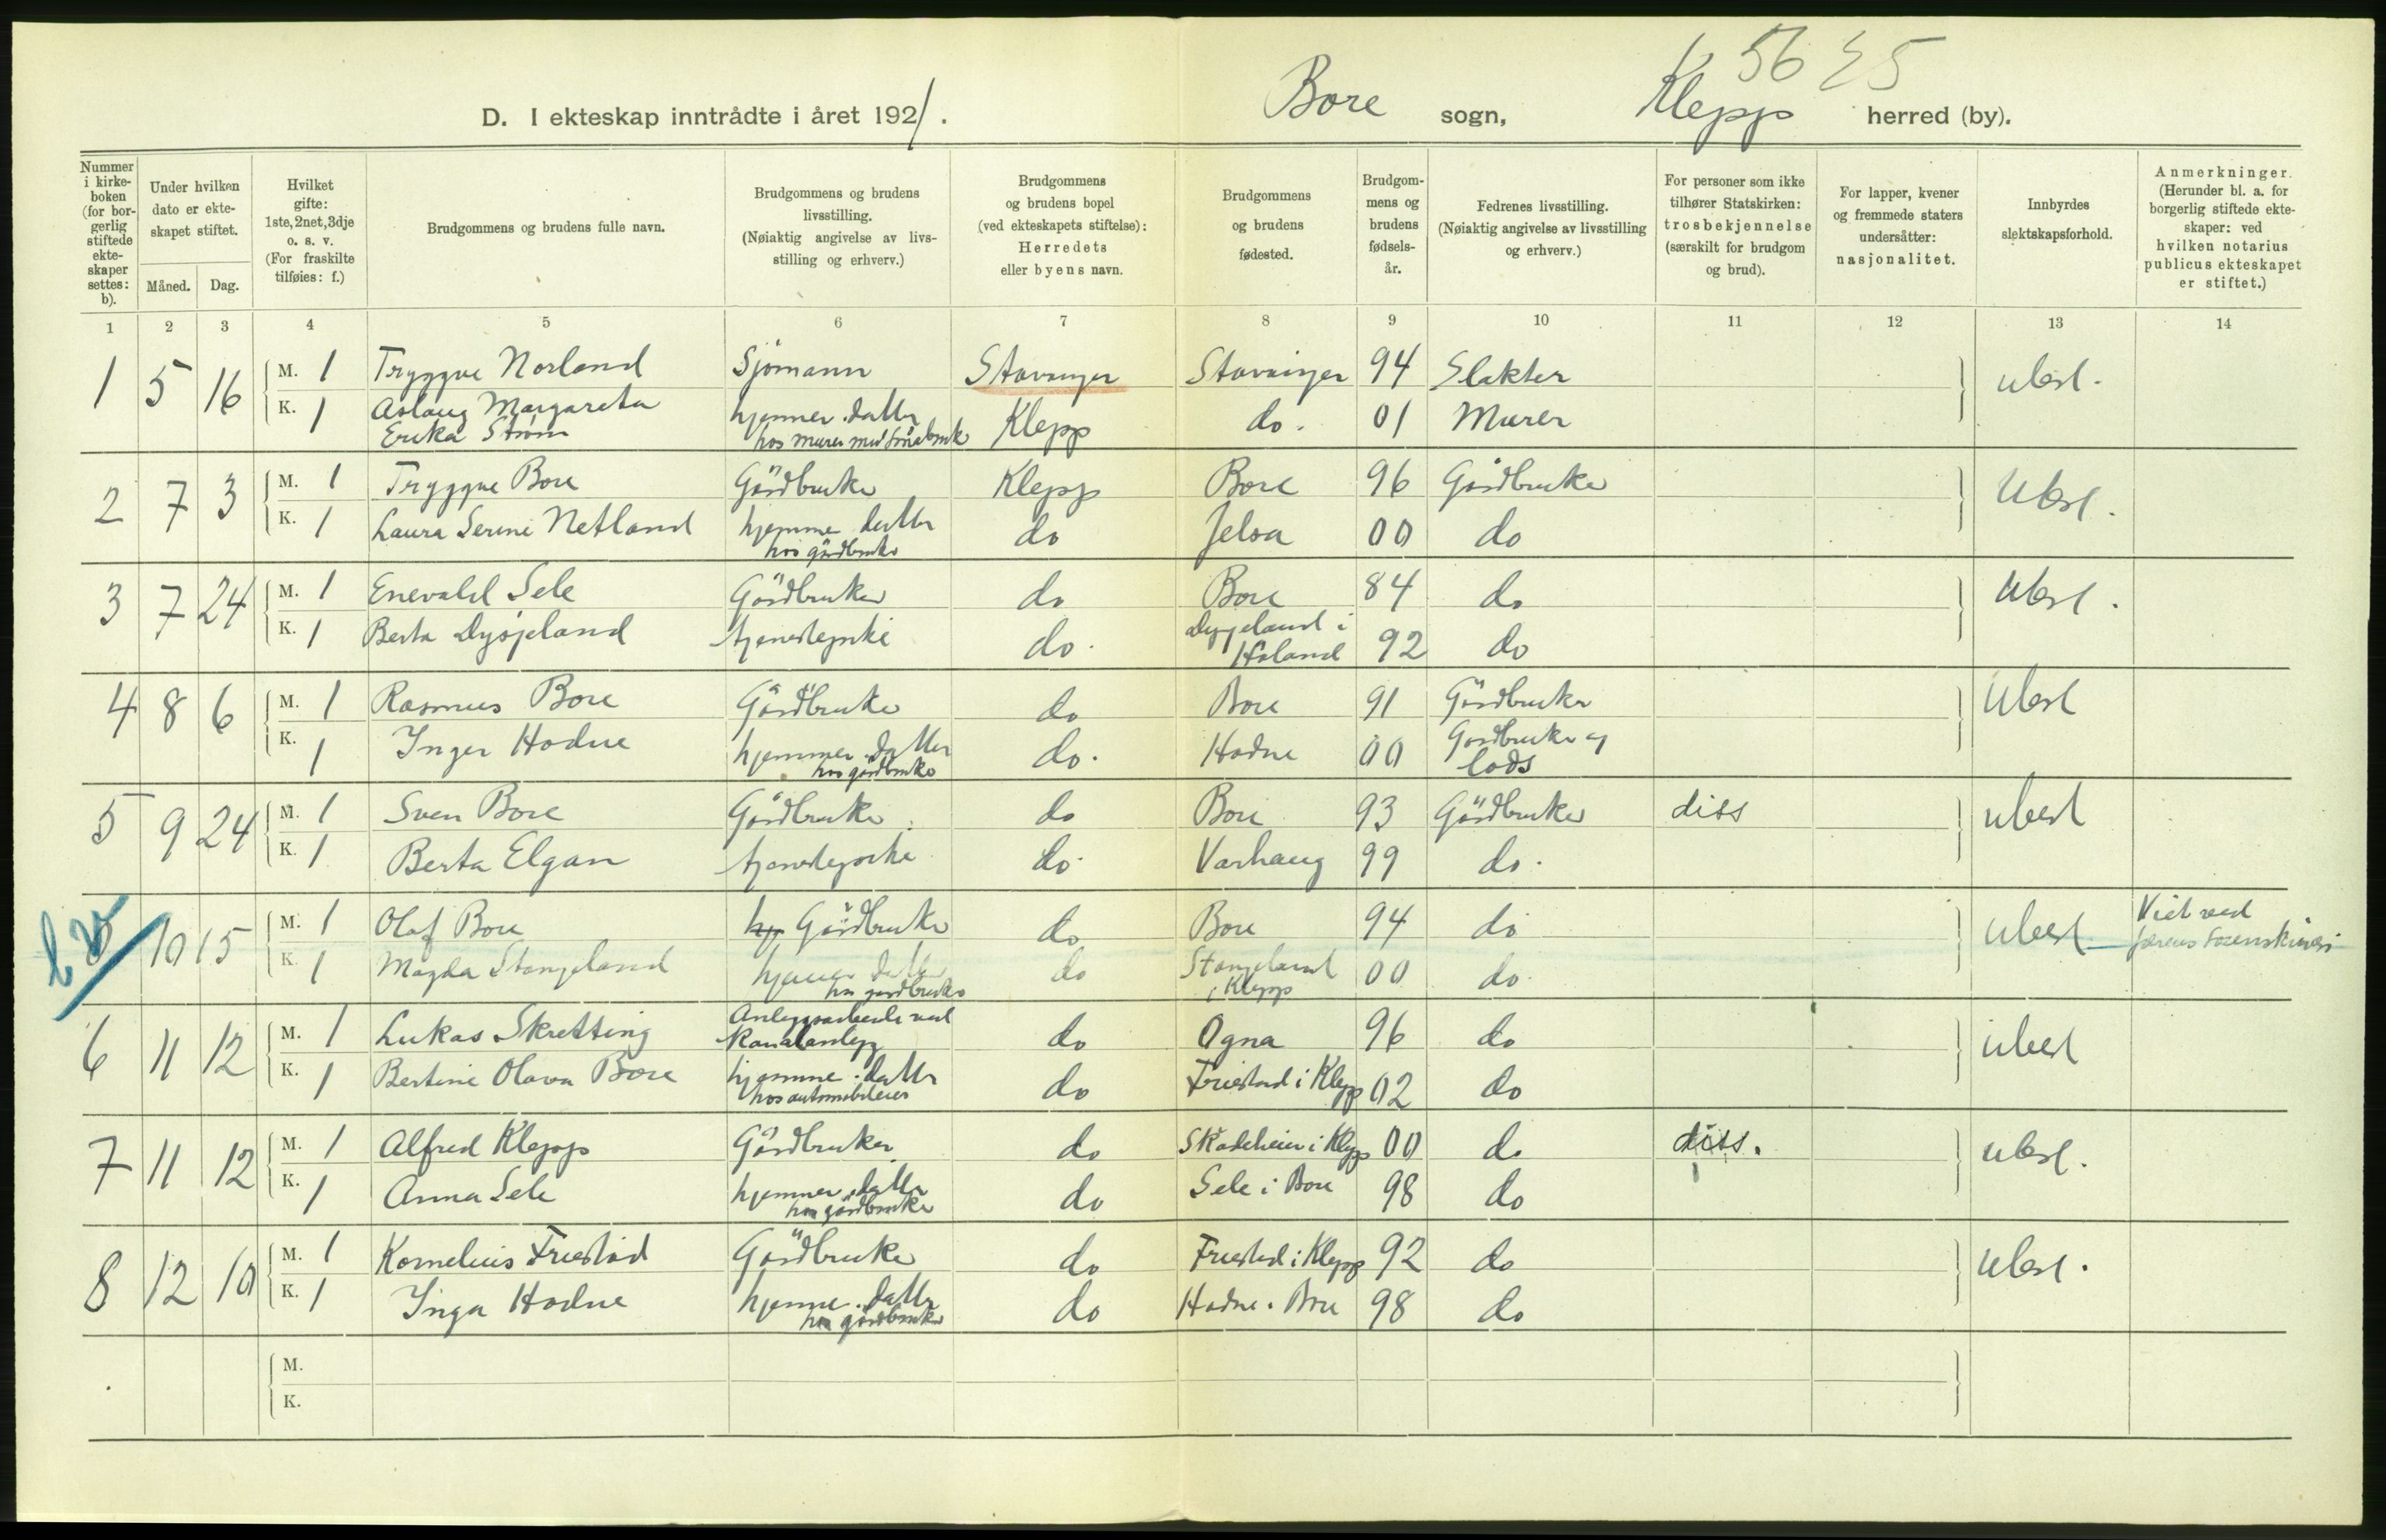 56 25
D. I ekteskap inntrådte i året 1921.
Bore sogn, Klepp herred (by).
Nummer i kirke-boken (for bor-gerlig stiftede ekte-skaper settes: b).
Under hvilken dato er ekte-skapet stiftet.
Måned. Dag.
Hvilket gifte: 1ste, 2net, 3dje o. s. v. (For fraskilte tilføies: f.)
Brudgommens og brudens fulle navn.
Brudgommens og brudens livsstilling. (Nøiaktig angivelse av livs-stilling og erhverv.)
Brudgommens og brudens bopel (ved ekteskapets stiftelse): Herredets eller byens navn.
Brudgommens og brudens fødested.
Brudgom-mens og brudens fødsels-år.
Fedrenes livsstilling. (Nøiaktig angivelse av livsstilling og erhverv.)
For personer som ikke tilhører Statskirken: trosbekjennelse (særskilt for brudgom og brud).
For lapper, kvener og fremmede staters undersåtter: nasjonalitet.
Innbyrdes slektskapsforhold.
Anmerkninger. (Herunder bl. a. for borgerlig stiftede ekte-skaper: ved hvilken notarius publicus ekteskapet er stiftet.)
1 2 3 4 5 6 7 8 9 10 11 12 13 14
1 5 16 M. 1 Tryggve Norland Sjömann Stavanger Stavanger 94 Slakter ubesl.
K. 1 Aslaug Margareta Erika Strøm hjemmev. datter hos murer med småbruk Klepp do. 01 Murer
2 7 3 M. 1 Tryggve Bore Gårdbruker Klepp Bore 96 Gårdbruker Ubesl.
K. 1 Laura Serine Netland hjemme datter hos gårdbruker do Jelsa 00 do
3 7 24 M. 1 Enevald Sele Gårdbruker do Bore 84 do Ubesl.
K. 1 Berta Dysjeland tjenestepike do. Dysjeland i Høland 92 do
4 8 6 M. 1 Rasmus Bore Gårdbruker do Bore 91 Gårdbruker Ubesl
K. 1 Inger Hodne hjemmev. datter hos gårdbruker do. Hodne 00 Gårdbruker og lods
5 9 24 M. 1 Sven Bore Gårdbruker do Bore 93 Gårdbruker diss ubesl
K. 1 Berta Elgan tjenestepike do. Varhaug 99 do.
b 10 15 M. 1 Olaf Bore Gårdbruker do Bore 94 do ubesl Viet ved Jærens Sorenskriveri
K. 1 Magda Stangeland hjemmev datter hos gårdbruker do Stangeland i Klepp 00 do
6 11 12 M. 1 Lukas Skretting Anleggsarbeider ved Kanalanlegg do Ogna 96 do ubesl
K. 1 Bertine Olava Bore hjemme. datter hos automobileier do Friestad i Klepp 02 do
7 11 12 M. 1 Alfred Klepp Gårdbruker do Skadeheien i Klepp 00 do diss. ubesl.
K. 1 Anna Sele hjemmev. datter hos gårdbruker do Sele i Bore 98 do
8 12 10 M. 1 Kornelius Friestad Gårdbruker do Friestad i Klepp 92 do ubesl.
K. 1 Inga Hodne hjemme. datter hos gårdbruker do Hodne i Bore 98 do
M.
K.